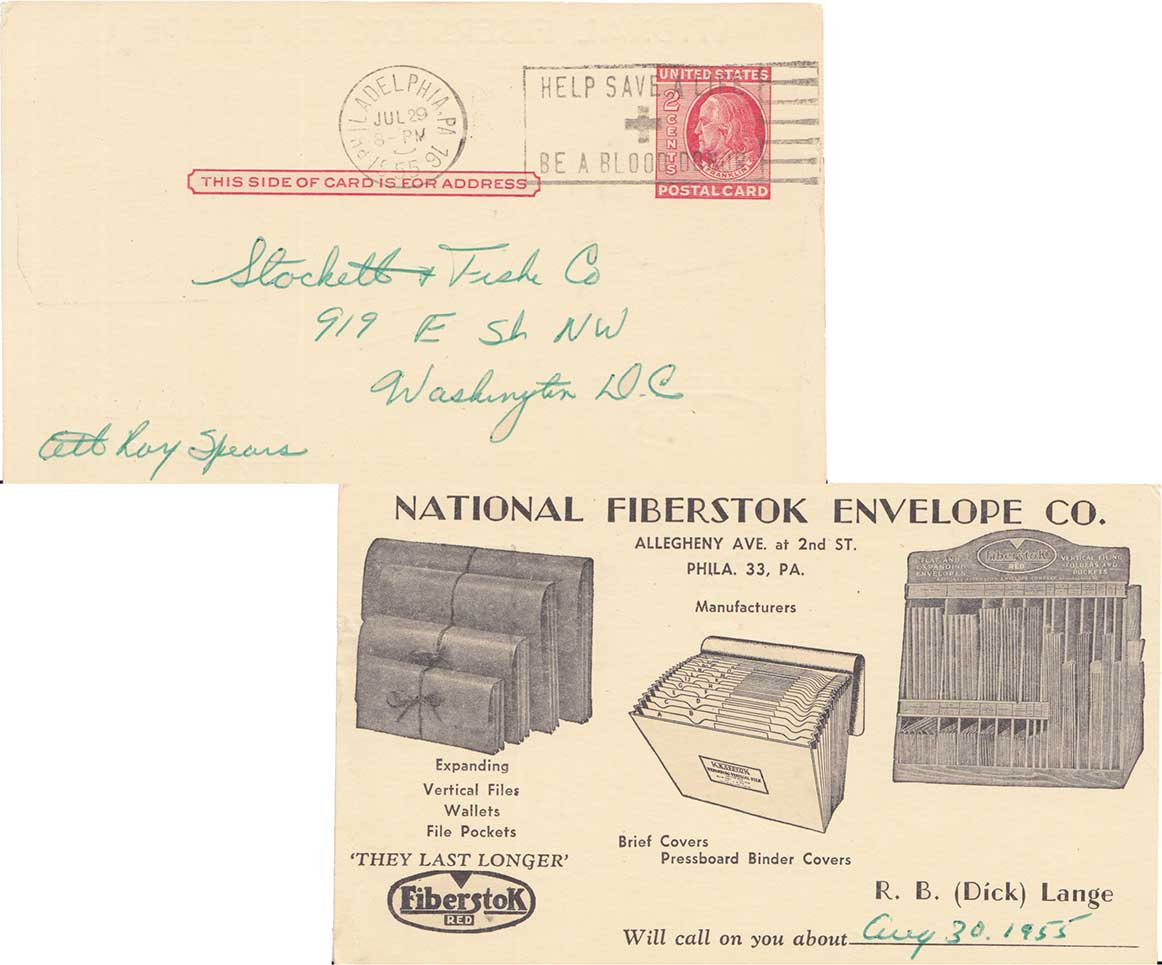 PHILADELPHIA, PA. 16
JUL 29
8 - PM
1955
HELP SAVE A LIFE
BE A BLOOD DONOR
UNITED STATES
2 CENTS
FRANKLIN
POSTAL CARD
THIS SIDE OF CARD IS FOR ADDRESS
Stockett & Fiske Co
919 E St NW
Washington D.C
Att Roy Spears
NATIONAL FIBERSTOK ENVELOPE CO.
ALLEGHENY AVE. at 2nd ST.
PHILA. 33, PA.
Manufacturers
FLAT AND EXPANDING ENVELOPES
FiberstoK
RED
VERTICAL FILING FOLDERS AND POCKETS
NATIONAL FIBERSTOK ENVELOPE COMPANY
Expanding
Vertical Files
Wallets
File Pockets
'THEY LAST LONGER'
FiberstoK
RED
Brief Covers
Pressboard Binder Covers
R. B. (Dick) Lange
Will call on you about Aug 30. 1955